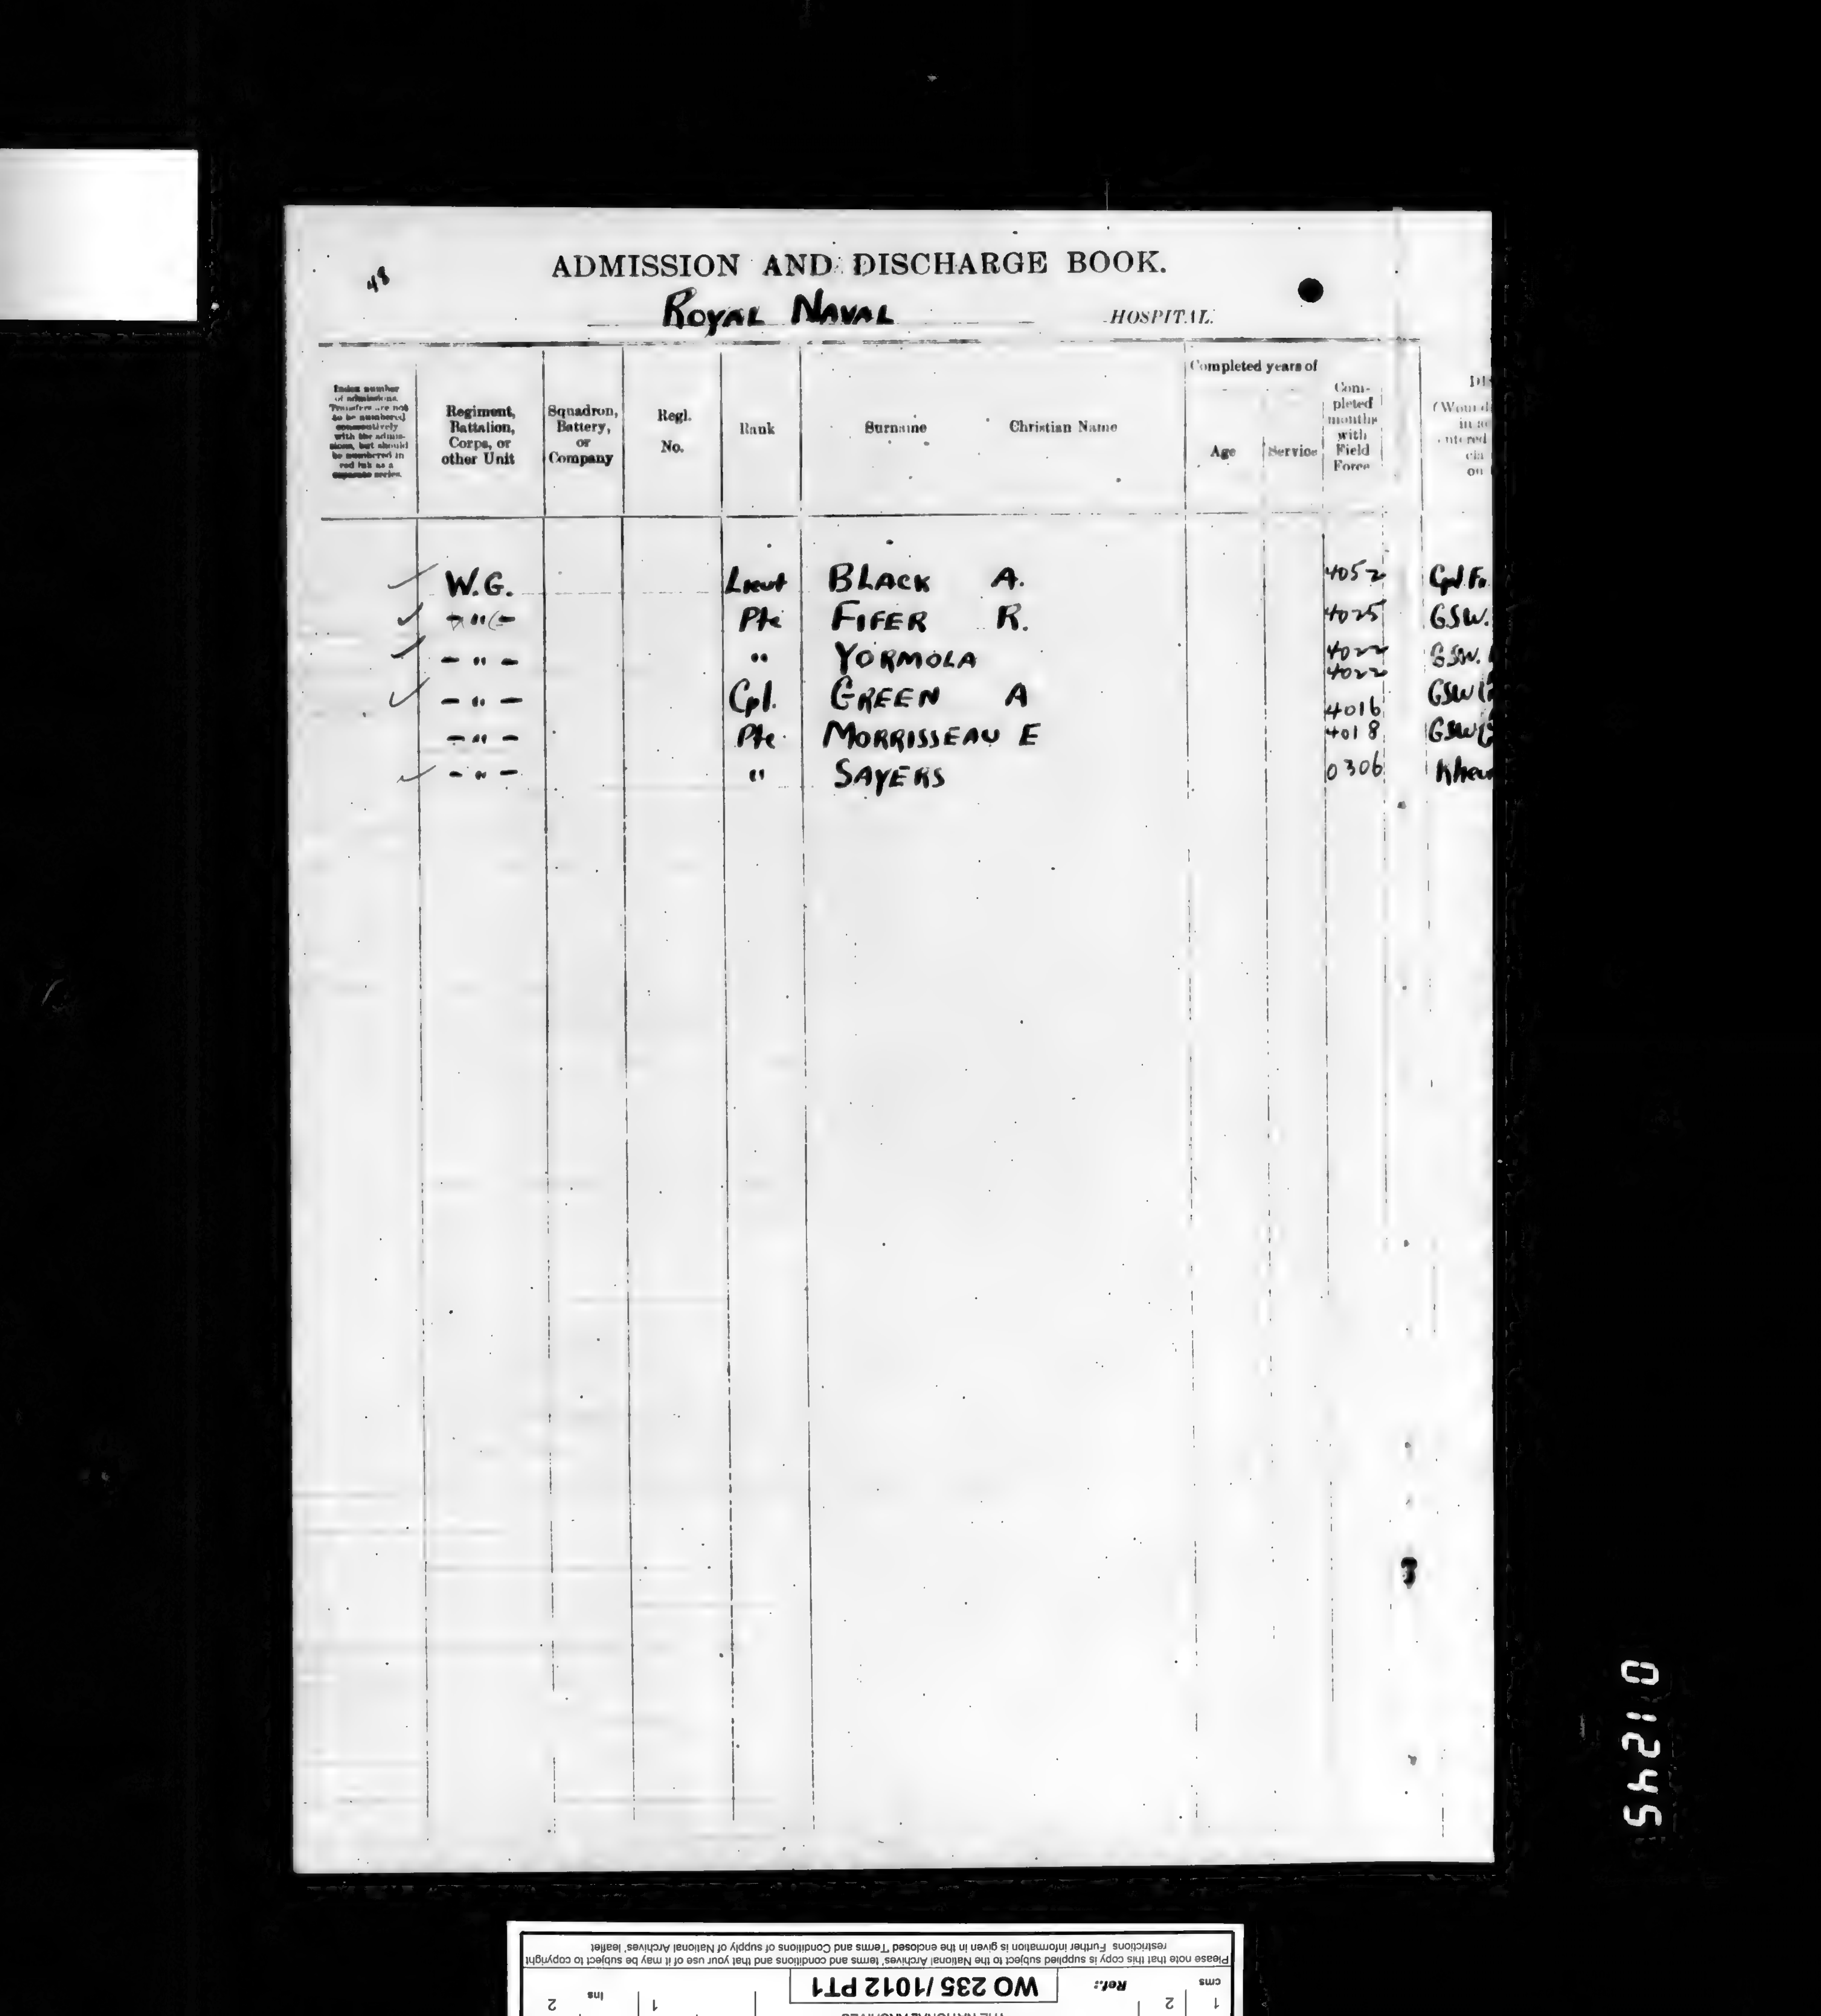 48
ADMISSION AND DISCHARGE BOOK.
ROYAL NAVAL HOSPITAL.
Completed years of
Index number
of admissions.
Transfers are not
to be numbered
consecutively
with the admis-
sions, but should
be numbered in
red ink as a
separate series.
Regiment,
Battalion,
Corps, or
other Unit
Squadron,
Battery,
or
Company
Regl.
No.
Rank
Surname Christian Name
Age
Service
Com-
pleted
months
with
Field
Force
W.G. Lieut BLACK A. 4052
- " - Pte FIFER R. 4025 GSW.
- " - " YORMOLA 4022 GSW.
4022
- " - Cpl. GREEN A 4016 GSW
- " - Pte. MORRISSEAU E 4018 GSW
- " - " SAYERS 0306
01245
Please note that this copy is supplied subject to the National Archives' terms and conditions and that your use of it may be subject to copyright
restrictions Further information is given in the enclosed 'Terms and Conditions of supply of National Archives' leaflet
cms 1 2
Ref.: WO 235/1012 PT1
1 Ins 2